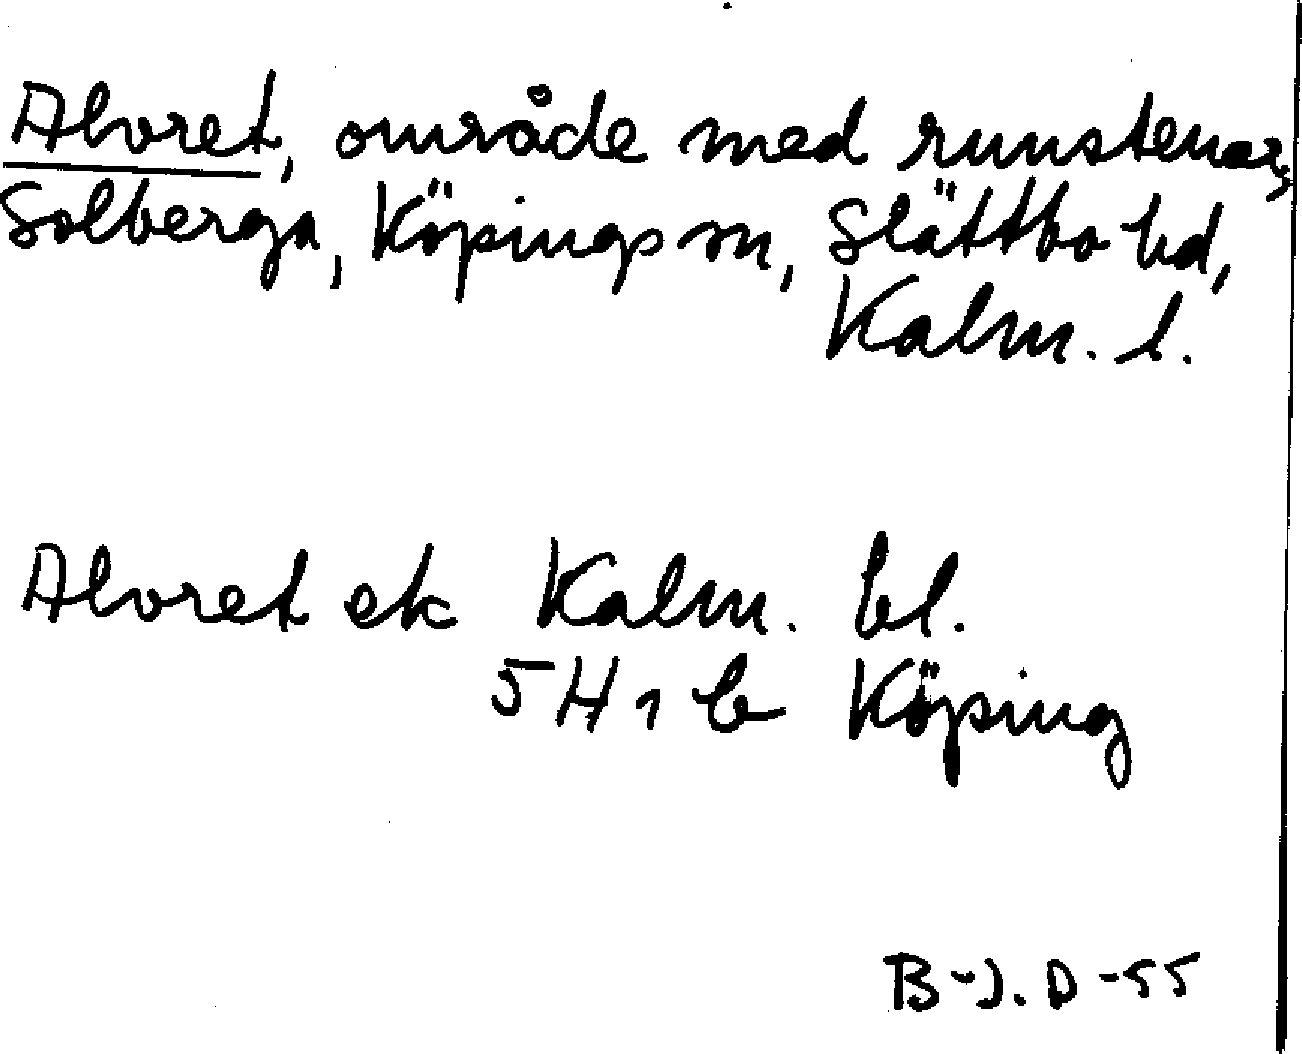 Alvret, område med runstenar,
Solberga, Köpings sn, Slättbo hd,
Kalm. l.
Alvret ek Kalm. bl.
5H 1 b Köping
B-J. D -55